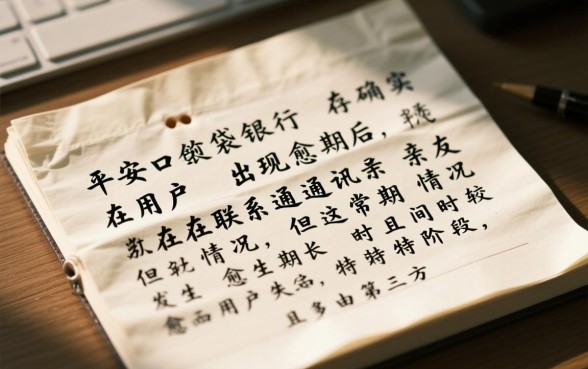 平安口袋银行 存确实
在用户 出现愈期后,
在在联系通通讯录 亲友
但就情况,但这常期 情况
发生 愈生期长 时且间时较
愈而用户失 ,特特特阶段,
且多由第三方